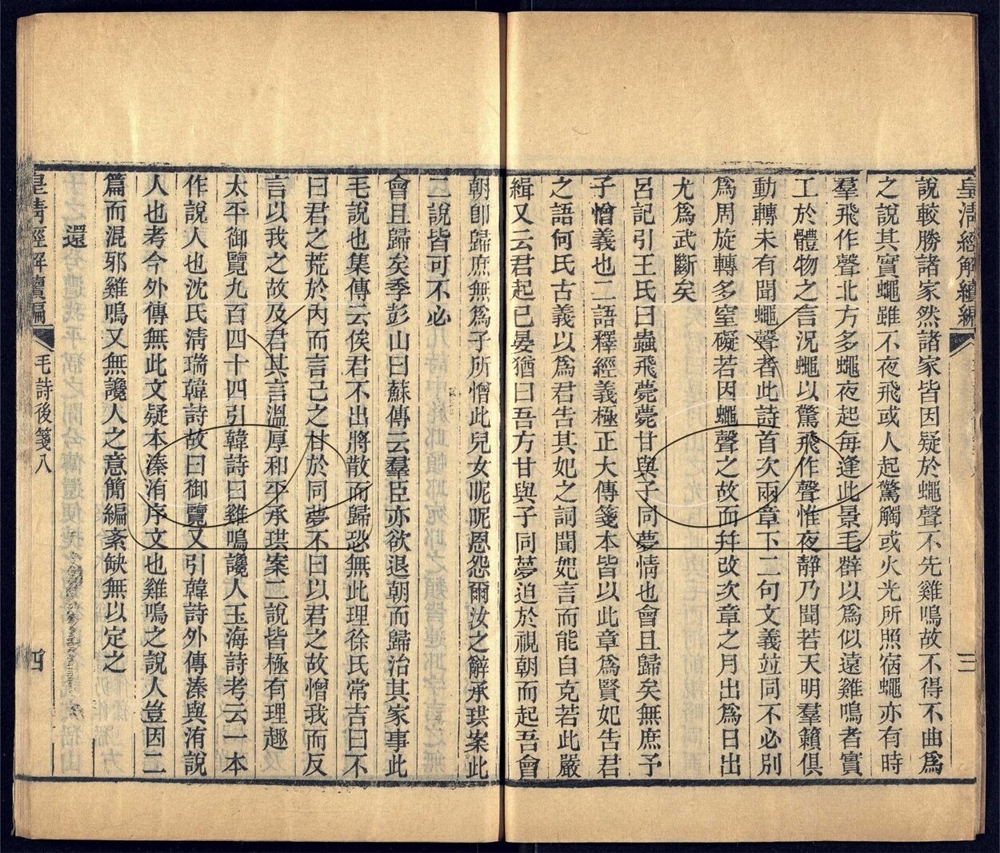 皇清經解續編
三
說較勝諸家然諸家皆因疑於蠅聲不先雞鳴故不得不曲爲
之說其實蠅雖不夜飛或人起驚觸或火光所照宿蠅亦有時
羣飛作聲北方多蠅夜起每逢此景毛辟以爲似遠雞鳴者實
工於體物之言況蠅以驚飛作聲惟夜靜乃聞若天明羣籟俱
動轉未有聞蠅聲者此詩首次兩章下二句文義並同不必別
爲周旋轉多窒礙若因蠅聲之故而幷改次章之月出爲日出
尤爲武斷矣
呂記引王氏曰蟲飛薨薨甘與子同夢情也會且歸矣無庶予
子憎義也二語釋經義極正大傳箋本皆以此章爲賢妃告君
之語何氏古義以爲君告其妃之詞聞妃言而能自克若此嚴
緝又云君起已晏猶曰吾方甘與子同夢迫於視朝而起吾會
朝卽歸庶無爲子所憎此兒女昵昵恩怨爾汝之辭承珙案此
三說皆可不必
會且歸矣季彭山曰蘇傳云羣臣亦欲退朝而歸治其家事此
毛說也集傳云俟君不出將散而歸恐無此理徐氏常吉曰不
曰君之荒於內而言己之甘於同夢不曰以君之故憎我而反
言以我之故及君其言溫厚和平承珙案二說皆極有理趣
太平御覽九百四十四引韓詩曰雞鳴讒人玉海詩考云一本
作說人也沈氏淸瑞韓詩故曰御覽又引韓詩外傳溱與洧說
人也考今外傳無此文疑本溱洧序文也雞鳴之說人豈因二
篇而混邪雞鳴又無讒人之意簡編紊缺無以定之
還
皇淸經解續編
毛詩後箋八
四